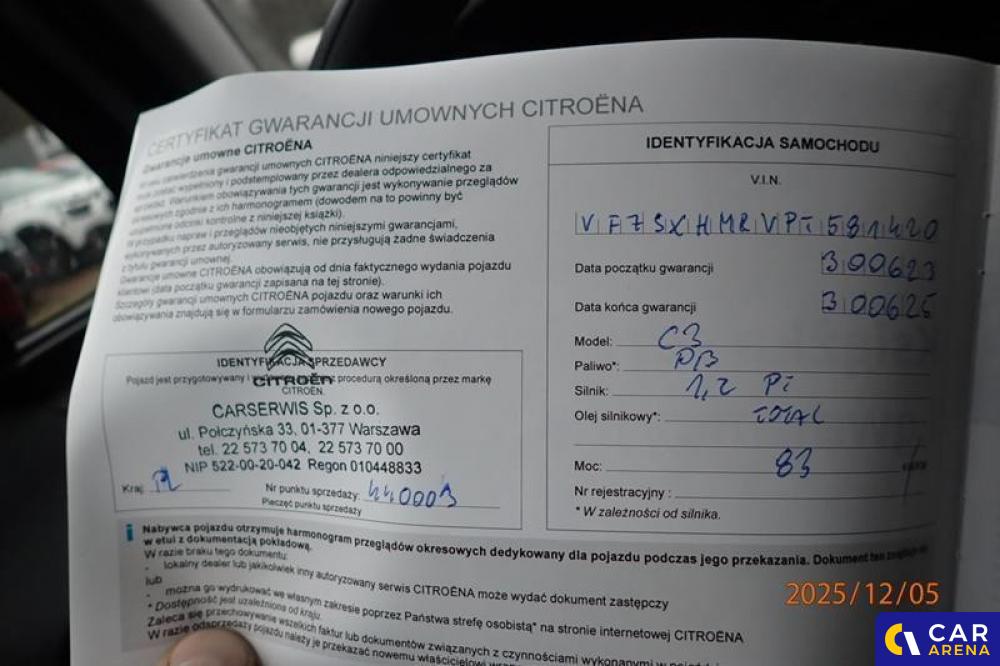 CERTYFIKAT GWARANCJI UMOWNYCH CITROËNA
Gwarancje umowne CITROËNA
potwierdzenia gwarancji umownych CITROËNA niniejszy certyfikat
wypełniony i podstemplowany przez dealera odpowiedzialnego za
Warunkiem obowiązywania tych gwarancji jest wykonywanie przeglądów
okresowych zgodnie z ich harmonogramem (dowodem na to powinny być
wypełnione odcinki kontrolne z niniejszej książki).
W przypadku napraw i przeglądów nieobjętych niniejszymi gwarancjami,
wykonywanych przez autoryzowany serwis, nie przysługują żadne świadczenia
z tytułu gwarancji umownej.
Gwarancje umowne CITROËNA obowiązują od dnia faktycznego wydania pojazdu
klientowi (data początku gwarancji zapisana na tej stronie).
Szczegóły gwarancji umownych CITROËNA pojazdu oraz warunki ich
obowiązywania znajdują się w formularzu zamówienia nowego pojazdu.
IDENTYFIKACJA SPRZEDAWCY
Pojazd jest przygotowywany i procedurą określoną przez markę
CITROËN
CITROËN.
CARSERWIS Sp. z o.o.
ul. Połczyńska 33, 01-377 Warszawa
tel. 22 573 70 04, 22 573 70 00
NIP 522-00-20-042 Regon 010448833
Kraj: PL
Nr punktu sprzedaży: 440003
Pieczęć punktu sprzedaży
IDENTYFIKACJA SAMOCHODU
V.I.N.
VF7SXHMRVPT581420
Data początku gwarancji 300623
Data końca gwarancji 300625
Model: C3
Paliwo*: PB
Silnik: 1,2 PT
Olej silnikowy*: TOTAL
Moc: 83
Nr rejestracyjny :
* W zależności od silnika.
i
Nabywca pojazdu otrzymuje harmonogram przeglądów okresowych dedykowany dla pojazdu podczas jego przekazania. Dokument ten
w etui z dokumentacją pokładową.
W razie braku tego dokumentu:
- lokalny dealer lub jakikolwiek inny autoryzowany serwis CITROËNA może wydać dokument zastępczy
lub
- można go wydrukować we własnym zakresie poprzez Państwa strefę osobistą* na stronie internetowej CITROËNA
* Dostępność jest uzależniona od kraju.
Zaleca się przechowywanie wszelkich faktur lub dokumentów związanych z czynnościami wykonywanymi w
W razie odsprzedaży pojazdu należy je przekazać nowemu właścicielowi
2025/12/05
CAR
ARENA